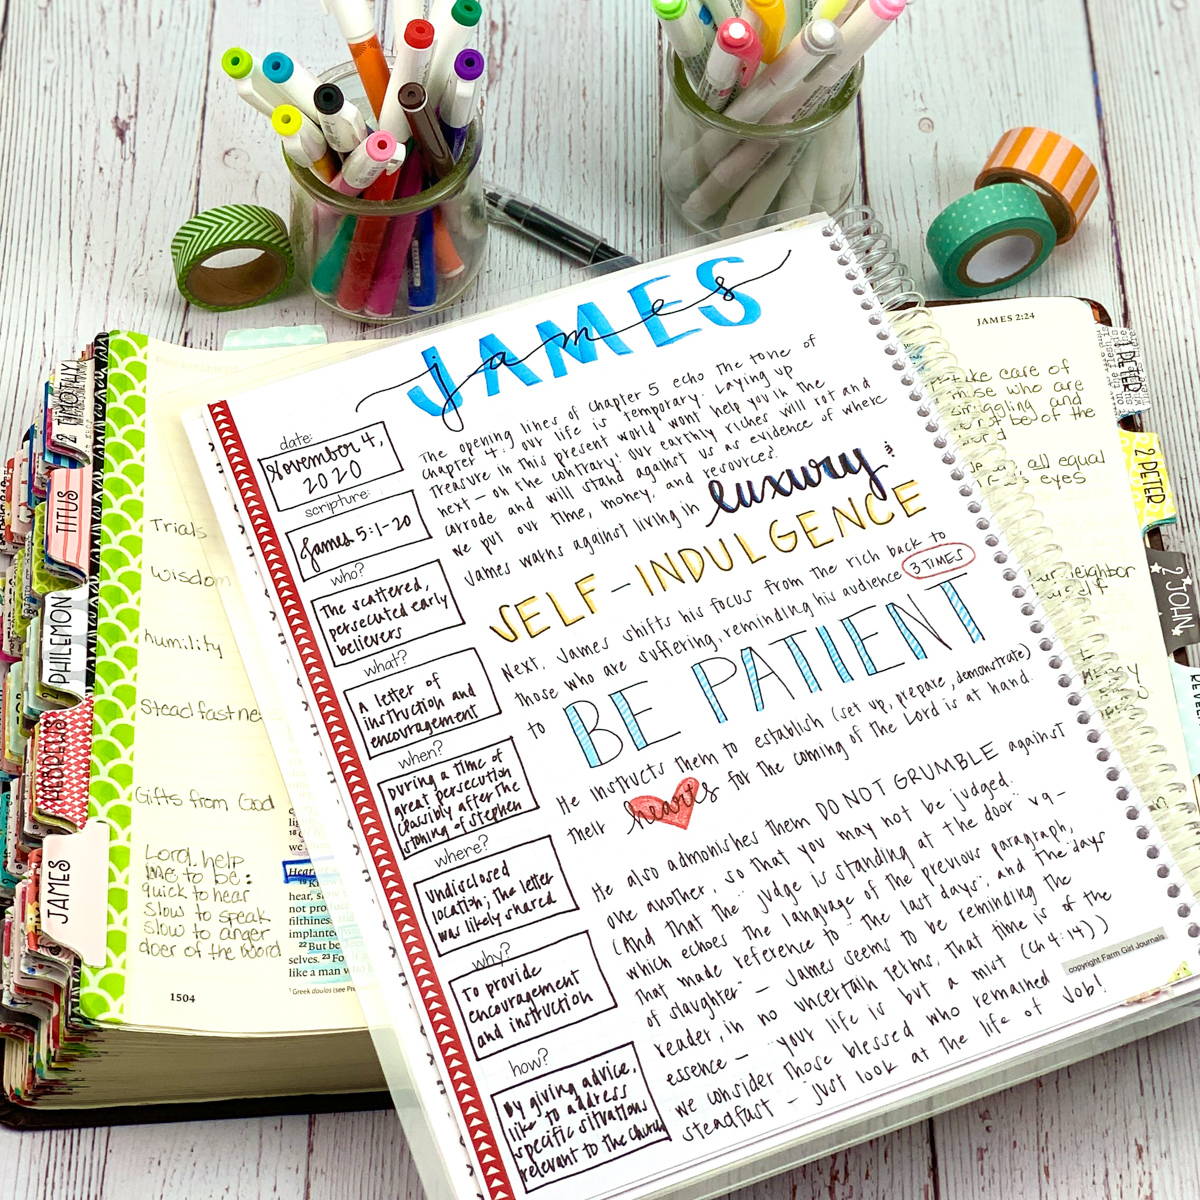 2 TIMOTHY
TITUS
PHILEMON
HEBREWS
JAMES
Trials
wisdom
humility
Steadfastne
Gifts from God
Lord, help
me to be:
quick to hear
slow to speak
slow to anger
doer of the word
1504
18
we
Hear
19 Know
hear, slow
not pro
filthines
implante
22 But be
selves. 23 Fo
like a man
1 Greek doulos (see Pre
JAMES
james
date:
November 4,
2020
scripture:
James 5:1-20
who?
The scattered,
persecuted early
believers
what?
A letter of
instruction and
encouragement
when?
During a time of
great persecution
(easibly after the
stoning of stephen
where?
Undisclosed
location; the letter
was likely shared
why?
To provide
encouragement
and instruction
how?
By giving advice,
like to address
specific situations
relevant to the church
The opening lines of Chapter 5 echo the tone of
Chapter 4: our life is temporary. Laying up
Treasure in this present world won't help you in the
next - on the contrary: our earthly riches will rot and
corrode and will stand against us as evidence of where
we put our time, money, and resources.
James warns against living in luxury &
SELF-INDULGENCE
Next, James shifts his focus from the rich back to
those who are suffering, reminding his audience 3 TIMES
to BE PATIENT
He instructs them to establish (set up, prepare, demonstrate)
their hearts for the coming of the Lord is at hand.
He also admonishes them DO NOT GRUMBLE against
one another, so that you may not be judged.
(And that the judge is standing at the door: v9-
which echoes the language of the previous paragraph,
that made reference to "the last days", and "the days
of slaughter" - James seems to be reminding the
reader, in no uncertain terms, that time is of the
essence - "your life is but a mist (Ch 4:14))
we consider those blessed who remained
steadfast - just look at the life of Job!
copyright Farm Girl Journals
JAMES 2:24
take care of
those who are
struggling and
not be of the
world
all equal
eyes
neighbor
1 PETER
2 PETER
2 JOHN
REVEL